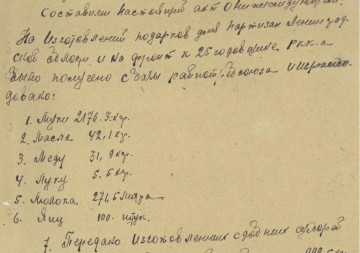 Составили настоящий акт о нижеследующем:
На изготовлений подарков для партизан Ленинград-
ской области и на фронт к 25 годовщине РККА
было получено с базы
довано:
1. Муки 2176.3 кгр.
2. Масла 42,1 кгр.
3. Меду 31,9 кгр.
4. Луку 5.5 кгр.
5. Молока 271,5 литра
6. Яиц 100. штук.
7. Передано изготовленных сдобных сухарей